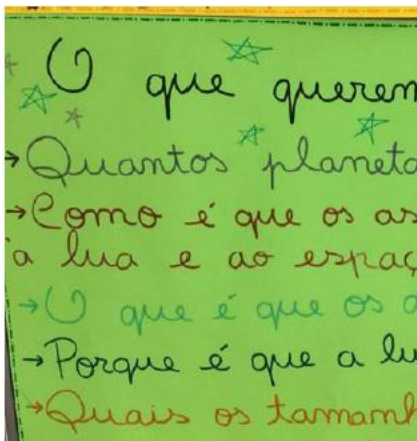 O que querem
→ Quantos planeta
→ Como é que os as
à lua e ao espaç
→ O que é que os a
→ Porque é que a lu
→ Quais os tamanh